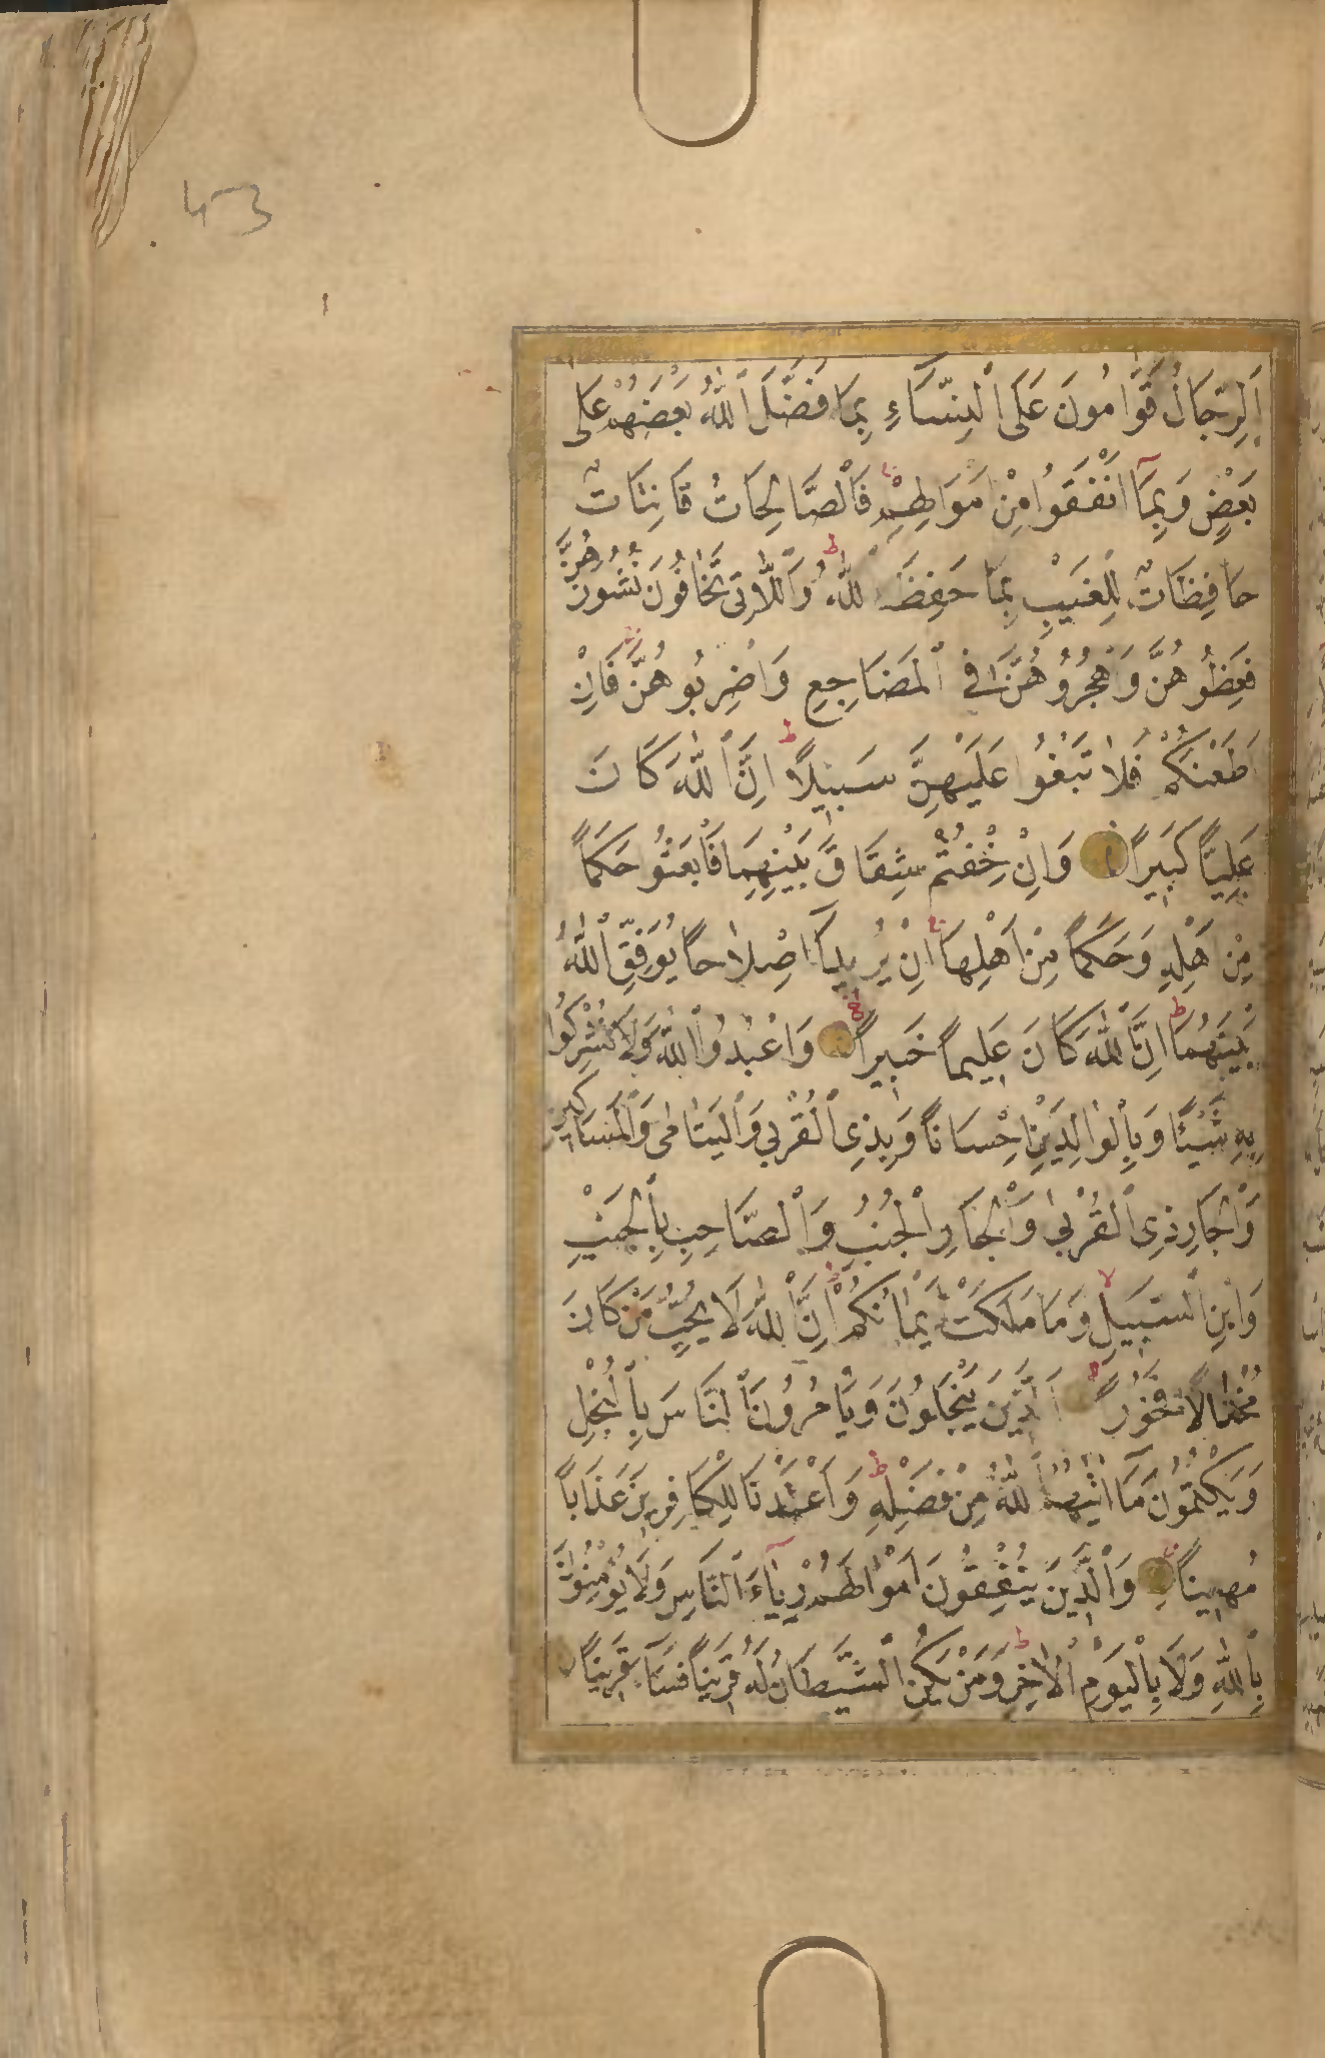 43
اَلرِّجَالُ قَوَّامُونَ عَلَى ٱلنِّسَآءِ بِمَا فَضَّلَ ٱللّٰهُ بَعْضَهُمْ عَلٰى
بَعْضٍ وَبِمَآ اَنْفَقُوا مِنْ اَمْوَالِهِمْ فَٱلصَّالِحَاتُ قَانِتَاتٌ
حَافِظَاتٌ لِلْغَيْبِ بِمَا حَفِظَ ٱللّٰهُ وَٱللَّاتِى تَخَافُونَ نُشُوزَهُنَّ
فَعِظُوهُنَّ وَٱهْجُرُوهُنَّ فِى ٱلْمَضَاجِعِ وَٱضْرِبُوهُنَّ فَاِنْ
اَطَعْنَكُمْ فَلَا تَبْغُوا عَلَيْهِنَّ سَبِيلًا اِنَّ ٱللّٰهَ كَانَ
عَلِيًّا كَبِيرًا وَاِنْ خِفْتُمْ شِقَاقَ بَيْنِهِمَا فَٱبْعَثُوا حَكَمًا
مِنْ اَهْلِهِ وَحَكَمًا مِنْ اَهْلِهَا اِنْ يُرِيدَآ اِصْلَاحًا يُوَفِّقِ ٱللّٰهُ
بَيْنَهُمَا اِنَّ ٱللّٰهَ كَانَ عَلِيمًا خَبِيرًا وَاعْبُدُوا ٱللّٰهَ وَلَا تُشْرِكُوا
بِهِ شَيْئًا وَبِٱلْوَالِدَيْنِ اِحْسَانًا وَبِذِى ٱلْقُرْبٰى وَٱلْيَتَامٰى وَٱلْمَسَاكِينِ
وَٱلْجَارِ ذِى ٱلْقُرْبٰى وَٱلْجَارِ ٱلْجُنُبِ وَٱلصَّاحِبِ بِٱلْجَنْبِ
وَابْنِ ٱلسَّبِيلِ وَمَا مَلَكَتْ اَيْمَانُكُمْ اِنَّ ٱللّٰهَ لَا يُحِبُّ مَنْ كَانَ
مُخْتَالًا فَخُورًا اَلَّذِينَ يَبْخَلُونَ وَيَاْمُرُونَ ٱلنَّاسَ بِٱلْبُخْلِ
وَيَكْتُمُونَ مَآ اٰتٰيهُمُ ٱللّٰهُ مِنْ فَضْلِهِ وَاَعْتَدْنَا لِلْكَافِرِينَ عَذَابًا
مُهِينًا وَٱلَّذِينَ يُنْفِقُونَ اَمْوَالَهُمْ رِيَآءَ ٱلنَّاسِ وَلَا يُؤْمِنُونَ
بِٱللّٰهِ وَلَا بِٱلْيَوْمِ ٱلْاٰخِرِ وَمَنْ يَكُنِ ٱلشَّيْطَانُ لَهُ قَرِينًا فَسَآءَ قَرِينًا